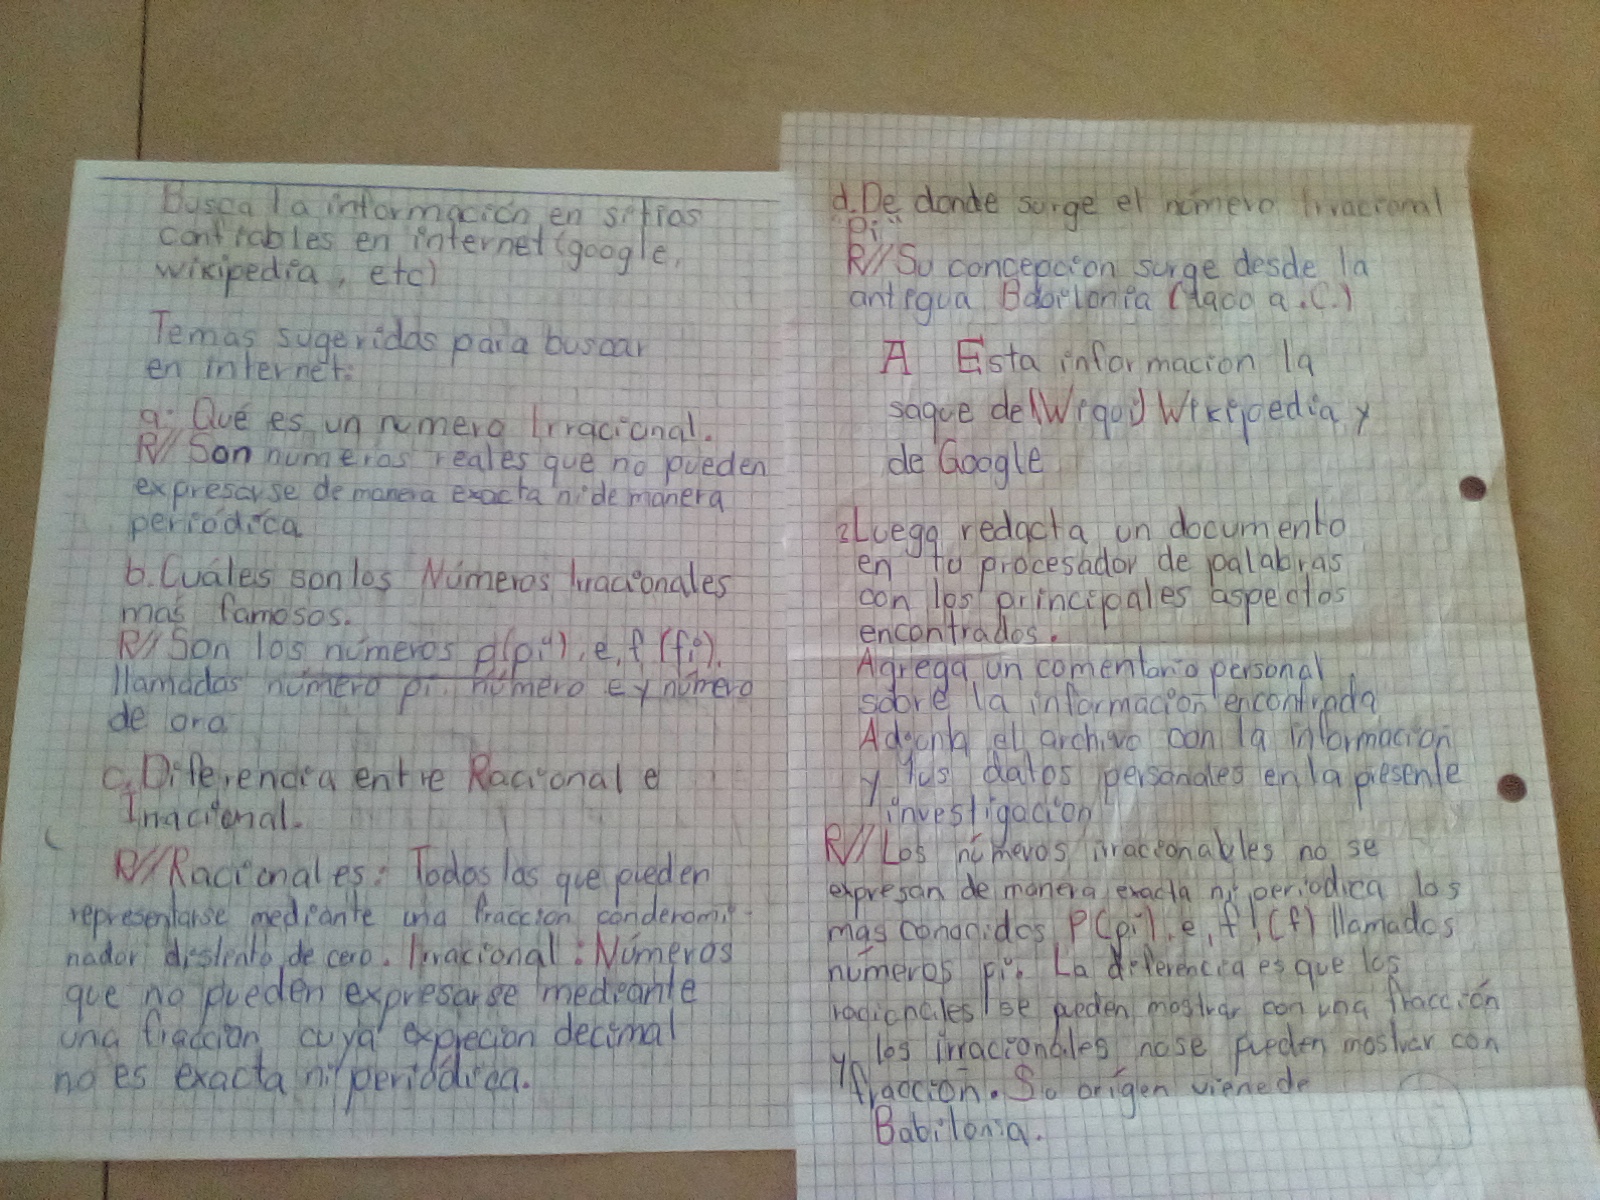 Busca la información en sitios
confiables en internet (google,
wikipedia, etc)
Temas sugeridos para buscar
en internet:
a. Qué es un numero Irracional.
R// Son numeros reales que no pueden
expresarse de manera exacta ni de manera
periódica
b. Cuáles son los Números Irracionales
mas famosos.
R// Son los números p(pi), e, f (fi),
llamadas número pi, número e y número
de oro
c. Diferencia entre Racional e
Irracional.
R// Racionales: Todos los que pueden
representarse mediante una fraccion con denomi-
nador distinto de cero. Irracional: Números
que no pueden expresarse mediante
una fraccion cuya exprecion decimal
no es exacta ni periódica.
d. De donde surge el número Irracional
"Pi"
R// Su concepcion surge desde la
antigua Babilonia (1900 a.C.)
A Esta informacion la
saque de (Wiqui) Wikipedia y
de Google
2 Luego redacta un documento
en tu procesador de palabras
con los principales aspectos
encontrados.
Agrega un comentario personal
sobre la información encontrada
Adjunta el archivo con la información
y tus datos personales en la presente
investigacion
R// Los números irracionables no se
expresan de manera exacta ni periodica los
mas conocidos P(pi), e, f, (f) llamados
números pi. La diferencia es que los
racionales se pueden mostrar con una fracción
y los irracionales no se pueden mostrar con
fracción. Su origen viene de
Babilonia.